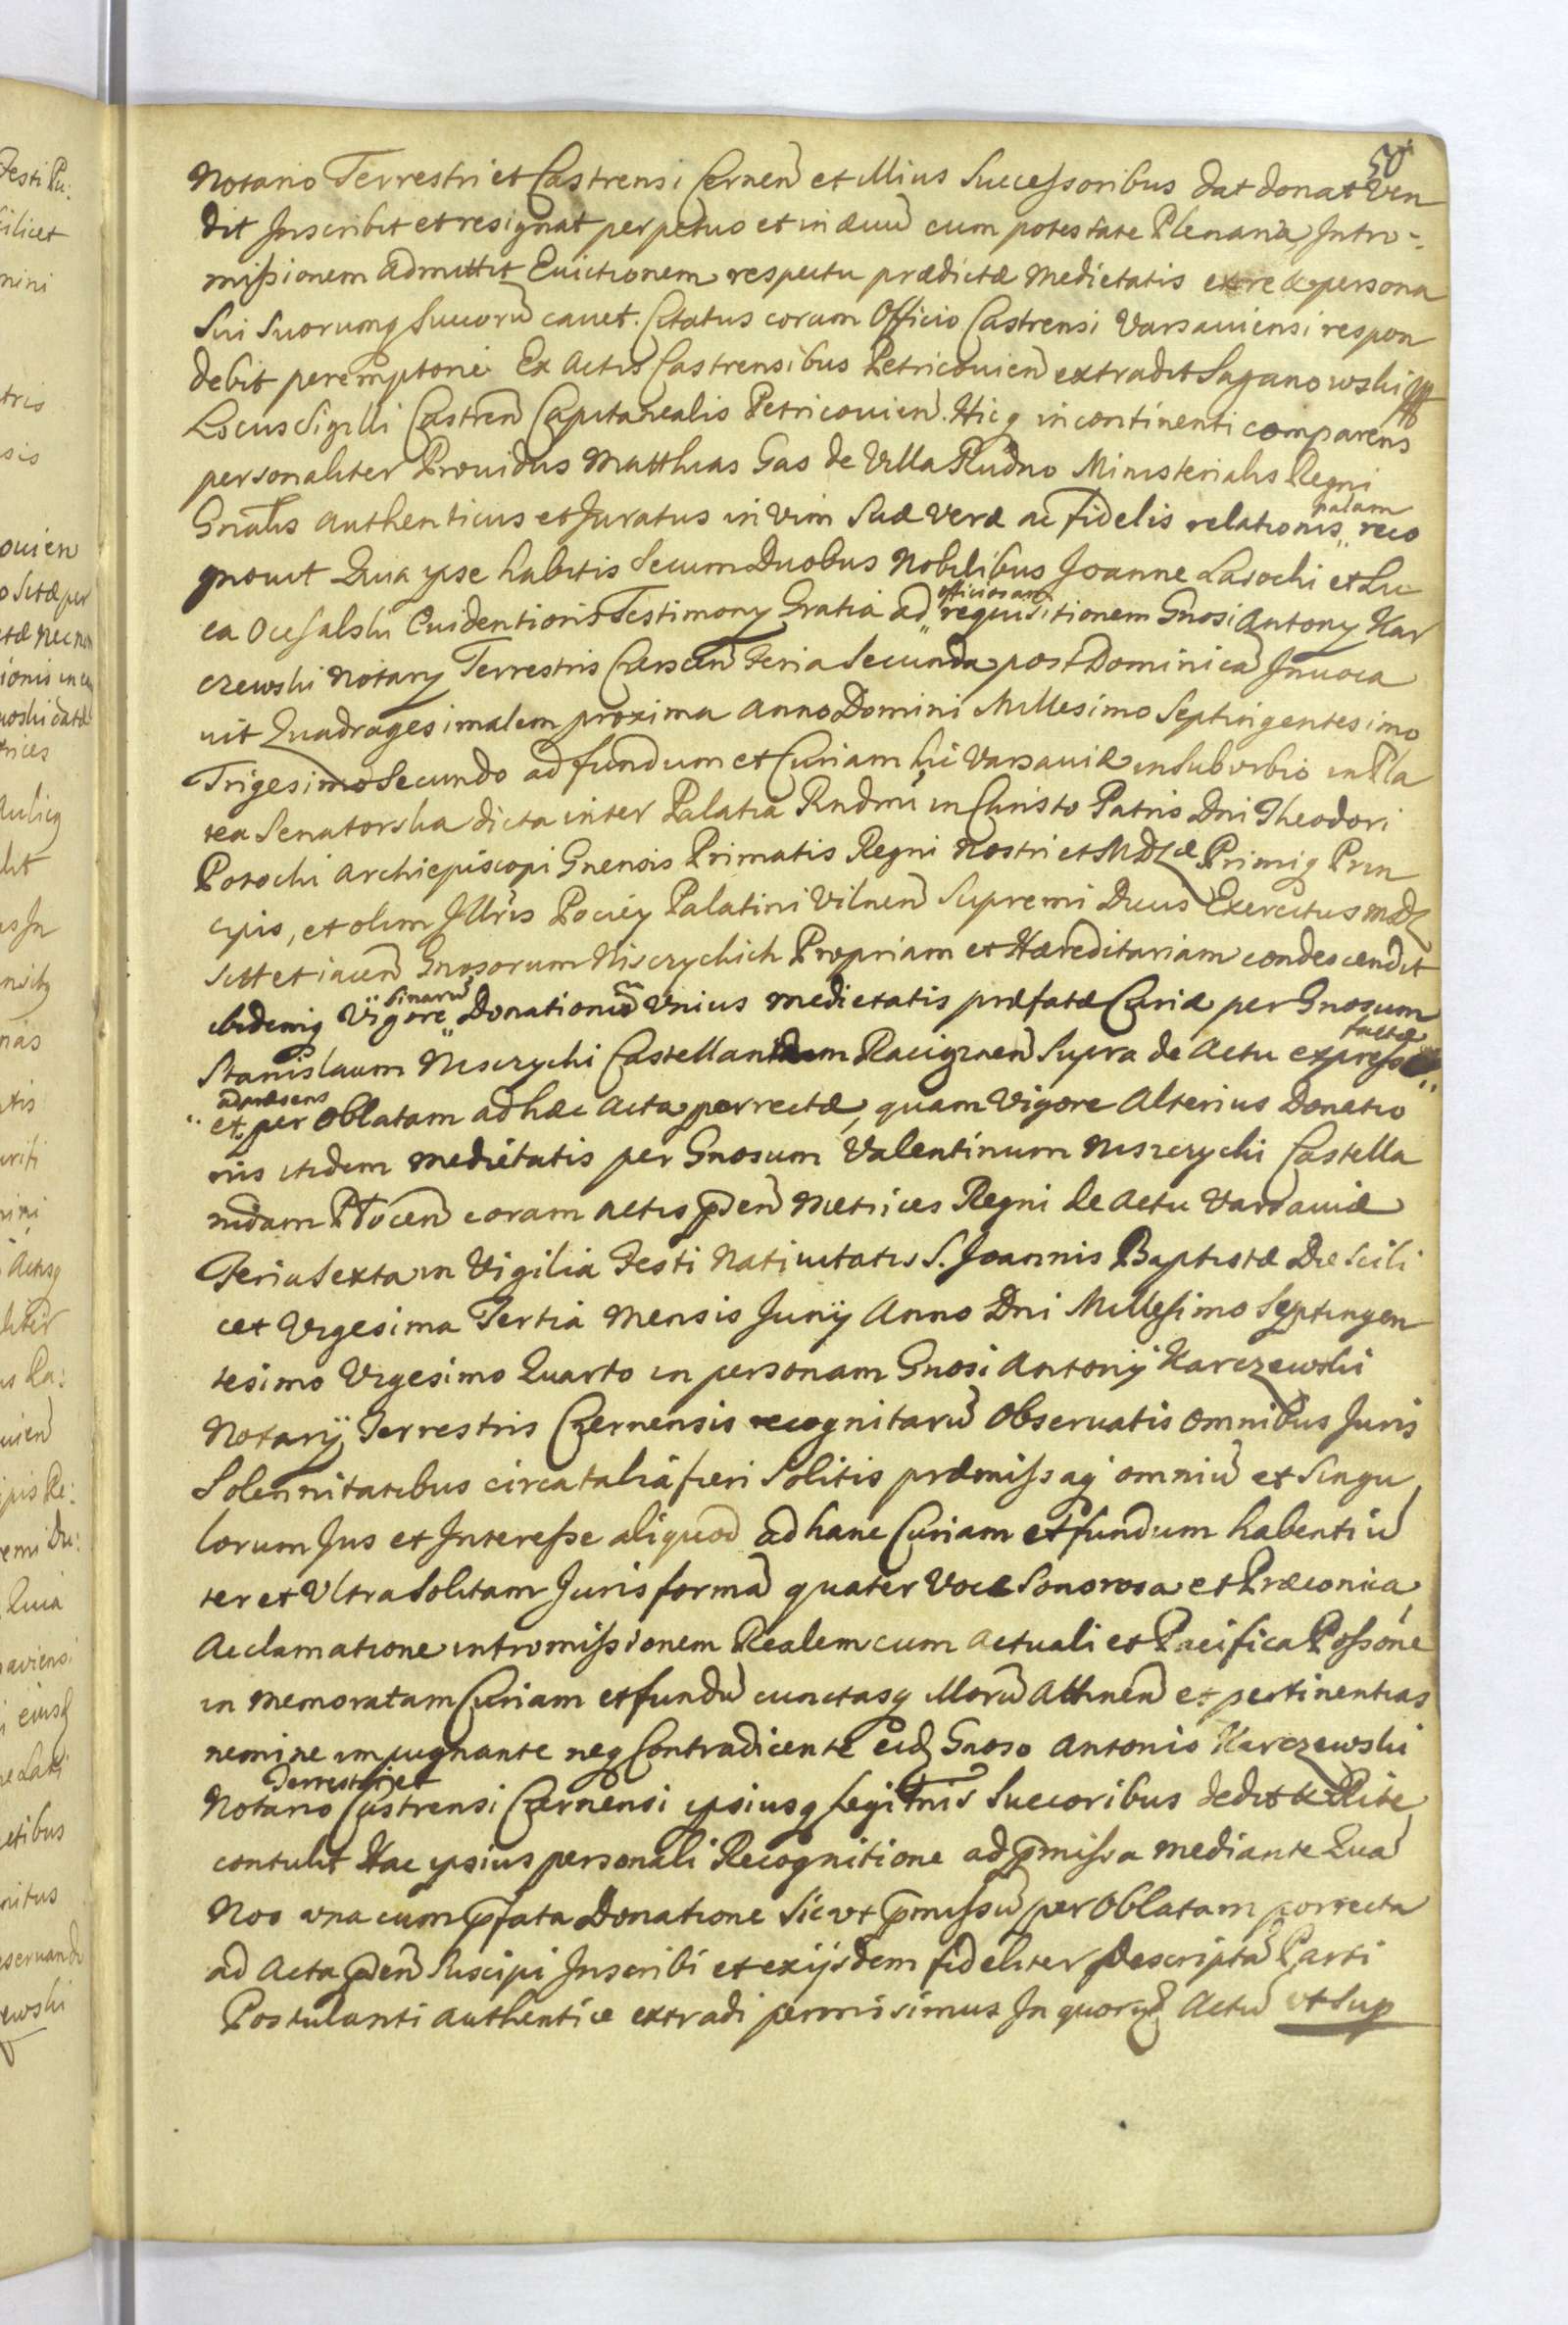 50
Notario Terrestri et Castrensi Cernen et illius Successoribus dat donat Ven
dit Inscribit et resignat perpetuo et in ævu cum potestate Plenaria Intro-
missionem admittit Evictionem respectu prædictæ Medietatis ex re & persona
Sui Suorumq Succorū cavet. Citatus coram Officio Castrensi Varsaviensi respon
debit peremptorie Ex Actis Castrensibus Petricovien extradit Saganowski
Locus Sigilli Castren Capitanealis Petricovien. Hicq in continenti comparens
personaliter Providus Matthias Gas de Villa Rudno Ministerialis Regni
palam
Gnalis authenticus et Juratus in vim Suæ veræ ac fidelis relationis reco
gnovit Quia ipse habitis Secum Duobus Nobilibus Joanne Lasocki et Lu
officiosam
ca Ocesalski Evidentioris Testimony Gratia ad requisitionem Gnosi Antony Kar
czewski Notary Terrestris Cersen Feria Secunda post Dominicā Invoca
vit Quadragesimalem proxima Anno Domini Millesimo Septingentesimo
Trigesimo Secundo ad fundum et Curiam hic Varsaviæ in Suburbio in Pla
tea Senatorska dicta inter Palatia Rndmi in Christo Patris Dni Theodori
Potocki Archiepiscopi Gnensis Primatis Regni Nostri et MDLæ Primiq Prin
cipis, et olim Illris Pociey Palatini Vilnen Supremi Ducis Exercitus MDL
sitt et iacen Gnosorum Niscryckich Propriam et Hæreditariam condescendit
binarū
ibidemq Vigore Donationū Unius medietatis præfatæ Curiæ per Gnosum
factæ
Stanislaum Niscrycki Castellanidam Raciąznen Supra de Actu express
ad præsens
et per Oblatam ad hæc Acta porrectæ, quam Vigore Alterius Donatio
nis itidem medietatis per Gnosum Valentinum Niszczycki Castella
nidam Plocen coram Actis pden Metrices Regni de Actu Varsaviæ
Feria Sexta in Vigilia Festi Nativitatis S. Joannis Baptistæ Die Scili
cet Vigesima Tertia Mensis Junij Anno Dni Millesimo Septingen
tesimo Vigesimo Quarto in personam Gnosi Antonij Karczewski
Notarij Terrestris Czernensis recognitarū Observatis Omnibus Juris
Solennitatibus circa talia fieri Solitis præmissaq omniū et Singu
lorum Jus et Interesse aliquod ad hanc Curiam et fundum habentiū
ter et Ultra Solitam Juris formā quater Voce Sonorosa et Præconica
Acclamatione intromissionem Realem cum actuali et Pacifica Possone
in memoratam Curiam et fundū cunctasq illorū Attinen et pertinentias
nemine impugnante neq Contradicente eidē Gnoso Antonio Karczewski
Terrestri et
Notario Castrensi Czernensi ipsiusq legitmis Succoribus dedit & Rite
contulit Hac ipsius personali Recognitione ad pmissa mediante Quā
Nos una cum pfata Donatione Sic ut pmissū per Oblatam porrecta
ad Acta pden Suscipi Inscribi et ex ijsdem fideliter Descriptā Parti
Postulanti authentice extradi permisimus In quorū Actū ut Sup